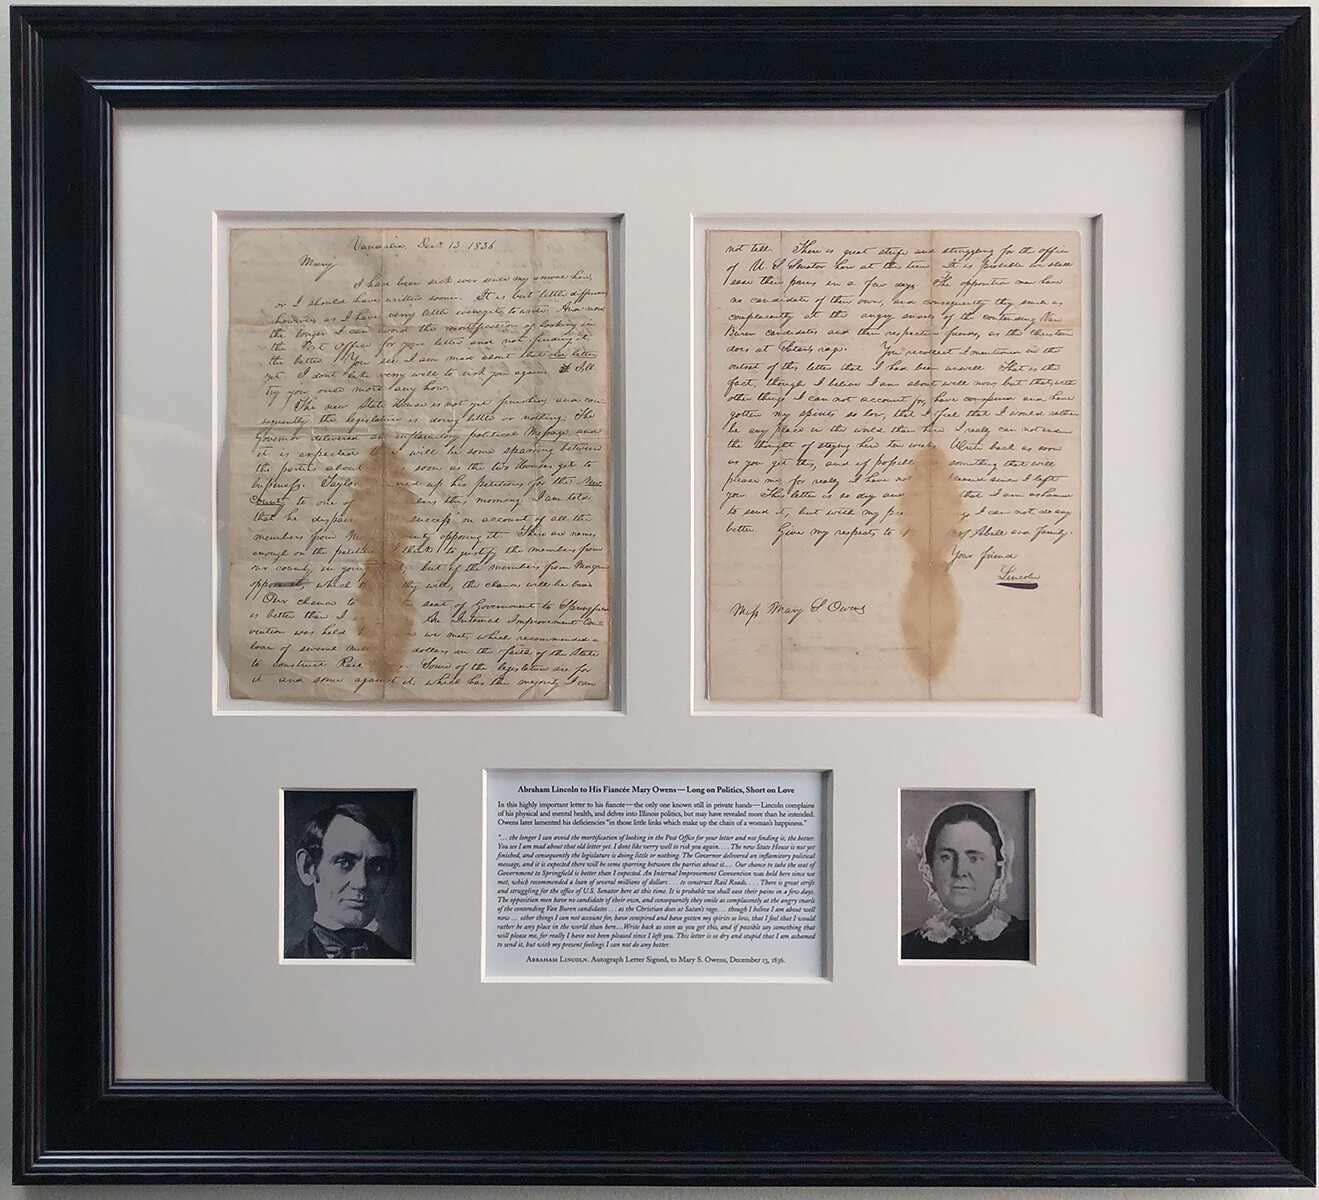 Vandalia, Decr 13 1836
Mary
I have been sick ever since my arrival here,
or I should have written sooner. It is but little difference,
however, as I have verry little even yet to write. And more,
the longer I can avoid the mortification of looking in
the Post Office for your letter and not finding it,
the better. You see I am mad about that old letter
yet. I dont like verry well to risk you again. I'll
try you once more any how.
The new State House is not yet finished, and con-
sequently the legislature is doing little or nothing. The
Governor delivered an inflamitory political Message, and
it is expected will be some sparring between
the parties about soon as the two Houses get to
business. Taylor up his petitions for the New
County to one of this morning. I am told
that he success on account of all the
members from opposing it. There are names
enough on the petition think to justify the members from
our county in going but if the members from Morgan
oppose which they will, the chance will be bad
Our chance to seat of Government to Springfield
is better than I An Internal Improvement Con-
vention was held we met, which recommended a
loan of several dollars on the faith of the State
to construct Rail Some of the legislature are for
it and some against it; which has the majority I can
not tell. There is great strife and struggling for the office
of U S Senator here at this time. It is probable we shall
ease their pains in a few days. The opposition men have
no candidate of their own, and consequently they smile as
complacently at the angry snarls of the contending Van
Buren candidates and their respective friends, as the Christian
does at Satan's rage. You recollect I mentioned in the
outset of this letter that I had been unwell. That is the
fact, though I believe I am about well now; but that, with
other things I can not account for, have conspired and have
gotten my spirits so low, that I feel that I would rather
be any place in the world than here. I really can not endure
the thought of staying here ten weeks. Write back as soon
as you get this, and if possible something that will
please me, for really I have not since I left
you. This letter is so dry and that I am ashamed
to send it, but with my pre I can not do any
better. Give my respects to Abell and family.
Your friend
Lincoln
Miss Mary S Owens
Abraham Lincoln to His Fiancée Mary Owens—Long on Politics, Short on Love
In this highly important letter to his fiancée—the only one known still in private hands—Lincoln complains
of his physical and mental health, and delves into Illinois politics, but may have revealed more than he intended.
Owens later lamented his deficiencies "in those little links which make up the chain of a woman's happiness."
"... the longer I can avoid the mortification of looking in the Post Office for your letter and not finding it, the better.
You see I am mad about that old letter yet. I dont like verry well to risk you again. . . . The new State House is not yet
finished, and consequently the legislature is doing little or nothing. The Governor delivered an inflamitory political
message, and it is expected there will be some sparring between the parties about it.... Our chance to take the seat of
Government to Springfield is better than I expected. An Internal Improvement Convention was held here since we
met, which recommended a loan of several millions of dollars . . . to construct Rail Roads. . . . There is great strife
and struggling for the office of U.S. Senator here at this time. It is probable we shall ease their pains in a few days.
The opposition men have no candidate of their own, and consequently they smile as complacently at the angry snarls
of the contending Van Buren candidates . . . as the Christian does at Satan's rage.... though I belive I am about well
now ... other things I can not account for, have conspired and have gotten my spirits so low, that I feel that I would
rather be any place in the world than here....Write back as soon as you get this, and if possible say something that
will please me, for really I have not been pleased since I left you. This letter is so dry and stupid that I am ashamed
to send it, but with my present feelings I can not do any better.
ABRAHAM LINCOLN. Autograph Letter Signed, to Mary S. Owens, December 13, 1836.